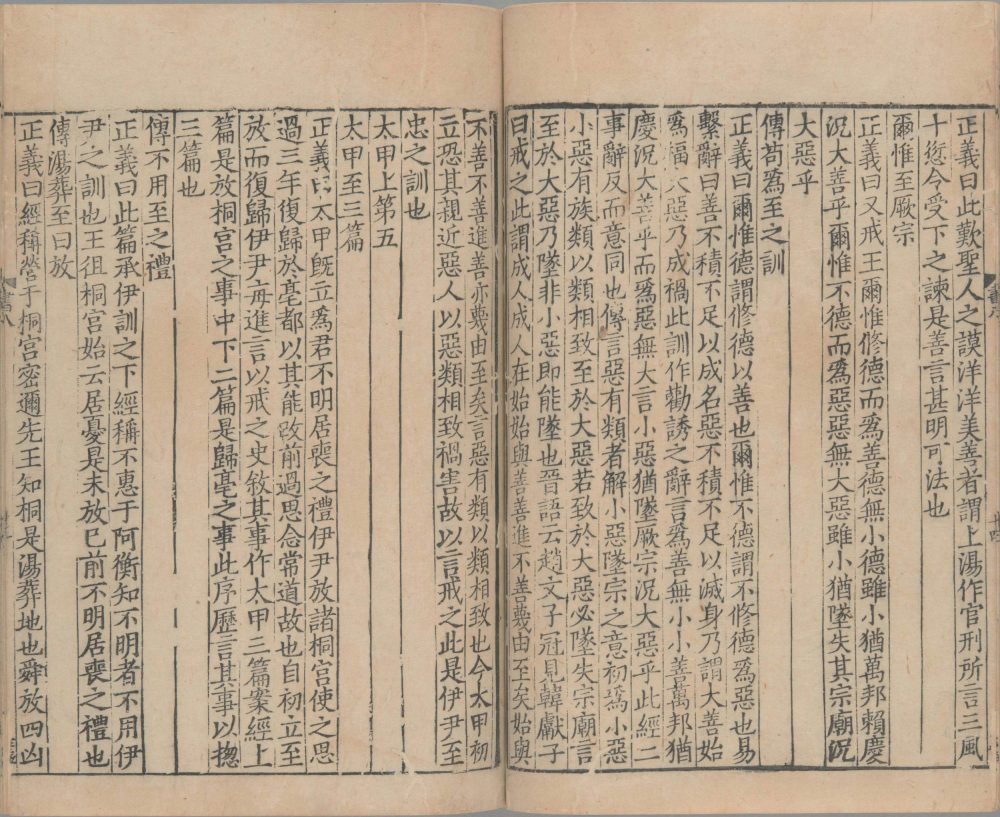 正義曰此歎聖人之謨洋洋美善者謂上湯作官刑所言三風
十愆令受下之諫是善言甚明可法也
爾惟至厥宗
正義曰又戒王爾惟修德而爲善德無小德雖小猶萬邦賴慶
況大善乎爾惟不德而爲惡惡無大惡雖小猶墜失其宗廟況
大惡乎
傳苟爲至之訓
正義曰爾惟德謂修德以善也爾惟不德謂不修德爲惡也易
繫辭曰善不積不足以成名惡不積不足以滅身乃謂大善始
爲福大惡乃成禍此訓作勸誘之辭言爲善無小小善萬邦猶
慶況大善乎而爲惡無大言小惡猶墜厥宗況大惡乎此經二
事辭反而意同也傳言惡有類者解小惡墜宗之意初爲小惡
小惡有族類以類相致至於大惡若致於大惡必墜失宗廟言
至於大惡乃墜非小惡即能墜也晉語云趙文子冠見韓獻子
曰戒之此謂成人成人在始始與善善進不善蔑由至矣始與
不善不善進善亦蔑由至矣言惡有類以類相致也今太甲初
立恐其親近惡人以惡類相致禍害故以言戒之此是伊尹至
忠之訓也
太甲上第五
太甲至三篇
正義曰太甲既立爲君不明居喪之禮伊尹放諸桐宮使之思
過三年復歸於亳都以其能改前過思念常道故也自初立至
放而復歸伊尹每進言以戒之史敘其事作太甲三篇案經上
篇是放桐宮之事中下二篇是歸亳之事此序歷言其事以揔
三篇也
傳不用至之禮
正義曰此篇承伊訓之下經稱不惠于阿衡知不明者不用伊
尹之訓也王徂桐宮始云居憂是未放已前不明居喪之禮也
傳湯葬至曰放
正義曰經稱營于桐宮密邇先王知桐是湯葬地也舜放四凶